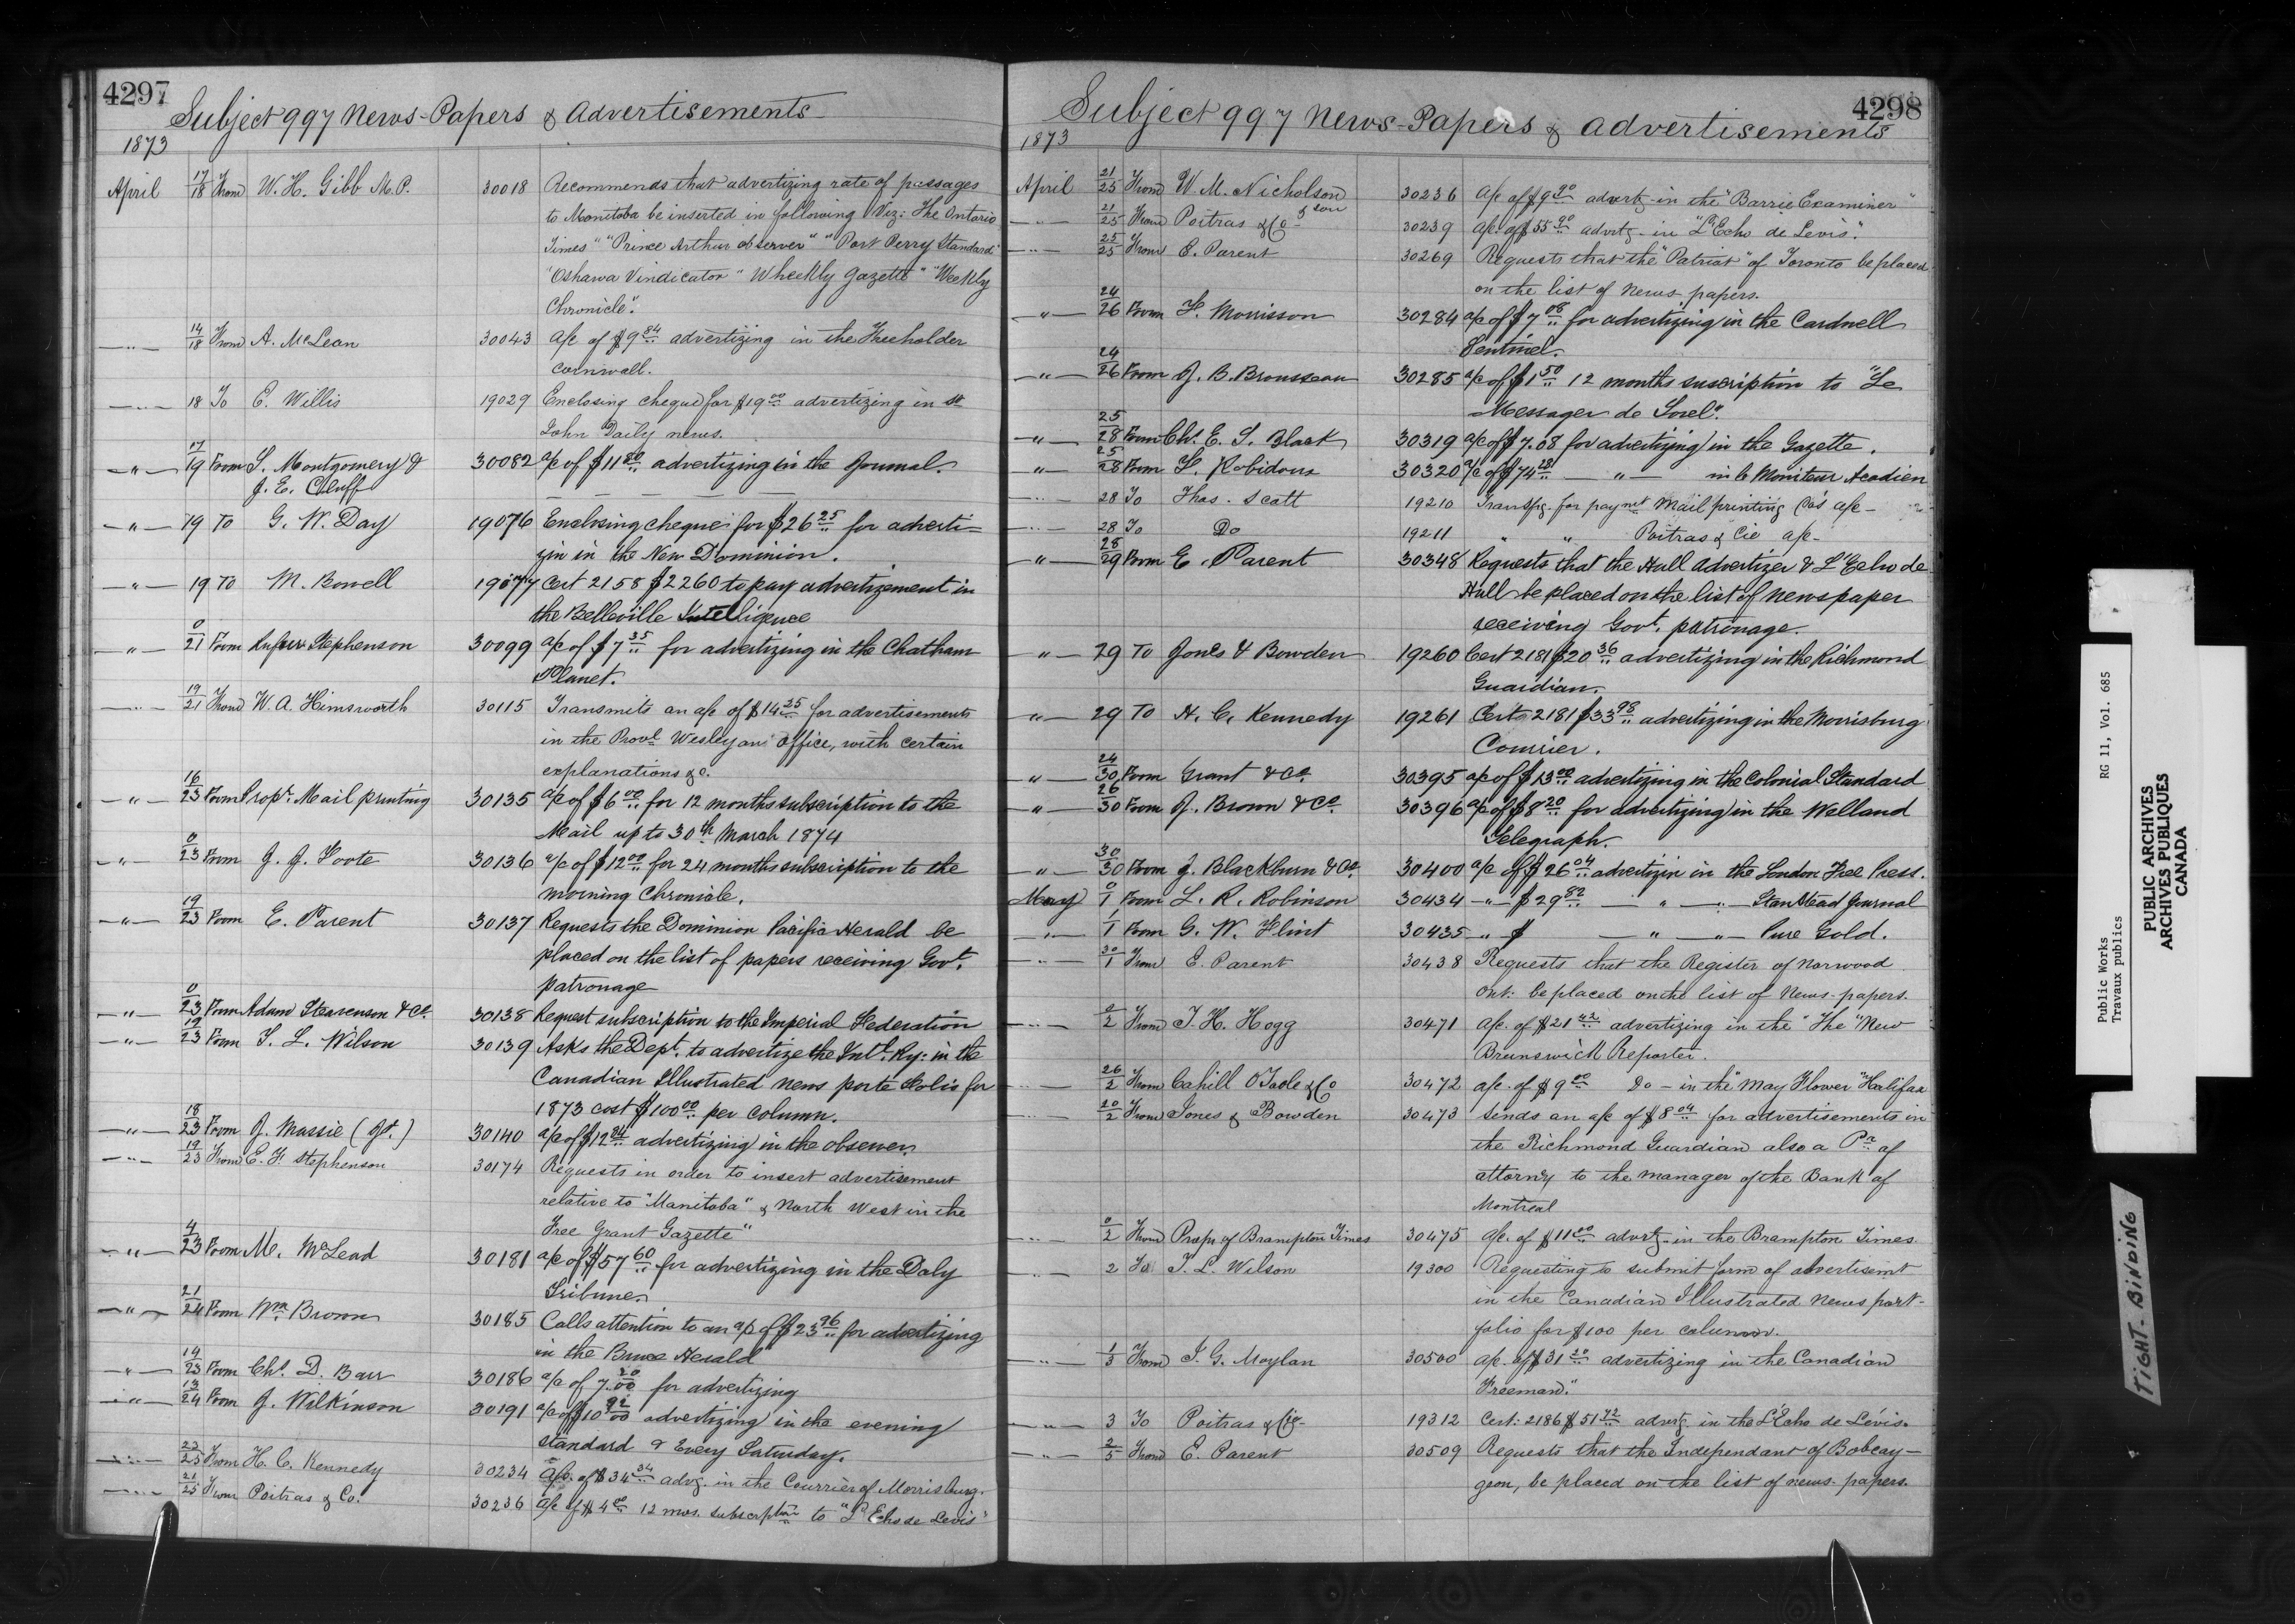 4297
Subject 997 News-Papers & Advertisements
1873
April 17/18 From W. H. Gibb M.P. 30018 Recommends that advertizing rate of passages
to Manitoba be inserted in following Viz: The Ontario
Times" "Prince Arthur observer" "Port Perry Standard"
"Oshawa Vindicator" Wheekly Gazette" "Weekly
Chronicle".
—"— 14/18 From A. McLean 30043 a/c of $9 84 advertizing in the Freeholder
Cornwall.
—"— 18 To E. Willis 19029 Enclosing cheque for $19 00 advertizing in St
John Daily news.
—"— 17/19 From S. Montgomery & 30082 a/c of $11 80 advertizing in the Journal.
J. E. Cluff
—"— 19 To G. W. Day 19076 Enclosing cheque for $26 25 for adverti=
zin in the New Dominion.
—"— 19 To M. Bowell 19077 Cert 2158 $2260 to pay advertizement in
the Belleville Intelligence
—"— 0/21 From Rufus Stephenson 30099 a/c of $7 35 for advertizing in the Chatham
Planet.
—"— 19/21 From W. A. Himsworth 30115 Transmits an a/c of $14 25 for advertisements
in the Provl Wesleyan office, with certain
explanations &c.
—"— 16/23 From Propr. Mail printing 30135 a/c of $6 00 for 12 months subscription to the
Mail up to 30th March 1874
—"— 0/23 From J. J. Foote 30136 a/c of $12 00 for 24 months subscription to the
morning Chronicle.
—"— 19/23 From E. Parent 30137 Requests the Dominion Pacific Herald be
placed on the list of papers receiving Govt.
patronage
—"— 0/23 From Adam Stearenson & Co. 30138 Request subscription to the Imperial Federation
—"— 19/23 From T. L. Wilson 30139 Asks the Dept. to advertize the Intl. Ry: in the
Canadian Illustrated news porte Folio for
1873 cost $100 00 per column.
—"— 18/23 From J. Massie (Jt.) 30140 a/c of $12 84 advertizing in the observer.
—"— 19/23 From E. F. Stephenson 30174 Requests in order to insert advertisement
relative to "Manitoba" & North West in the
Free Grant Gazette"
—"— 4/23 From M. McLead 30181 a/c of $57 60 for advertizing in the Daly
Tribune.
—"— 21/24 From Wm Brown 30185 Calls attention to an a/c of $23 96 for advertizing
in the Bruce Herald"
—"— 14/23 From Chs. D. Barr 30186 a/c of 7 20/00 for advertizing
—"— 13/24 From J. Wilkinson 30191 a/c of $10 92/00 advertizing in the evening
Standard & Every Saturday.
—"— 22/25 From H. C. Kennedy 30234 a/c. of $34 34 advg. in the Courrier of Morrisburg.
—"— 21/25 From Poitras & Co. 30236 a/c of $4 00 12 mos. subscrption to "L'Echo de Levis"
4298
Subject 997 News-Papers & Advertisements
1873
April 21/25 From W. M. Nicholson 30236 a/c of $9 90 advertg in the "Barrie Examiner"
& son
—"— 21/25 From Poitras & Co- 30239 a/c. of $55 90 advrtg. in "L'Echo de Levis".
—"— 25/25 From E. Parent 30269 Requests that the "Patriot" of Toronto be placed
on the list of News papers.
—"— 24/26 From F. Morrisson 30284 a/c of $7 08 for advertizing in the Cardwell
Sentinel.
—"— 24/26 From J. B. Brousseau 30285 a/c of $1 50 12 months suscription to "Le
Messager de Sorel".
—"— 25/28 From Chs. E. S. Black 30319 a/c of $7.08 for advertizing in the Gazette.
—"— 25/28 From F. Robidoux 30320 a/c of $74 28 —"— in le Moniteur Acadien
—"— 28 To Thos. Scott 19210 Transfg. for paymt Mail printing Co's a/c-
—"— 28 To Do 19211 " " Poitras & Cie a/c-
—"— 28/29 From E. Parent 30348 Requests that the Hull Advertizer & L'Echo de
Hull be placed on the list of Newspaper
receiving Govt. patronage.
—"— 29 To Jones & Bowden 19260 Cert 2181 $20 36 advertizing in the Richmond
Guardian.
—"— 29 To H. C. Kennedy 19261 Certs 2181 $33 98 advertizing in the Morrisburg
Courier.
—"— 24/30 From Grant & Co. 30395 a/c of $13 00 advertizing in the Colonial Standard
—"— 26/30 From J. Brown & Co. 30396 a/c of $8 20 for advertizing in the Welland
Telegraph.
—"— 30/30 From J. Blackburn & Co. 30400 a/c of $26 04 advertizin in the London Free Press.
May 0/1 From L. R. Robinson 30434 —"— $29 82 —"— —"— Stanstead Journal
—"— 1/1 From G. W. Flint 30435 —"— $ —"— —"— Pure Gold.
—"— 30/1 From E. Parent 30438 Requests that the Register of Norwood
Ont: be placed on the list of News-papers.
—"— 0/2 From T. H. Hogg 30471 a/c. of $21 42 advertizing in the "The "New
Brunswick Reporter.
—"— 26/2 From Cahill O'Toole & Co 30472 a/c. of $9 00 Do - in the "May Flower" Halifax
—"— 20/2 From Jones & Bowden 30473 Sends an a/c of $8 04 for advertisements in
the Richmond Guardian also a Pr of
attorney to the manager of the Bank of
Montreal
—"— 0/2 From Propr of Brampton Times 30475 a/c. of $11 00 advrtg. in the Brampton Times.
—"— 2 To T. L. Wilson 19300 Requesting to submit form of advertisemt
in the Canadian Illustrated News port-
folio for $100 per column.
—"— 1/3 From J. G. Moylan 30500 a/c. of $31 20 advertizing in the Canadian
Freeman".
—"— 3 To Poitras & Cie- 19312 Cert: 2186 $51 72 advrtg. in the L'Echo de Lévis.
—"— 2/5 From E. Parent 30509 Requests that the Independant of Bobcay-
geon, be placed on the list of news-papers.
Public Works RG 11, Vol. 685
Travaux publics
PUBLIC ARCHIVES
ARCHIVES PUBLIQUES
CANADA
TIGHT-BINDING